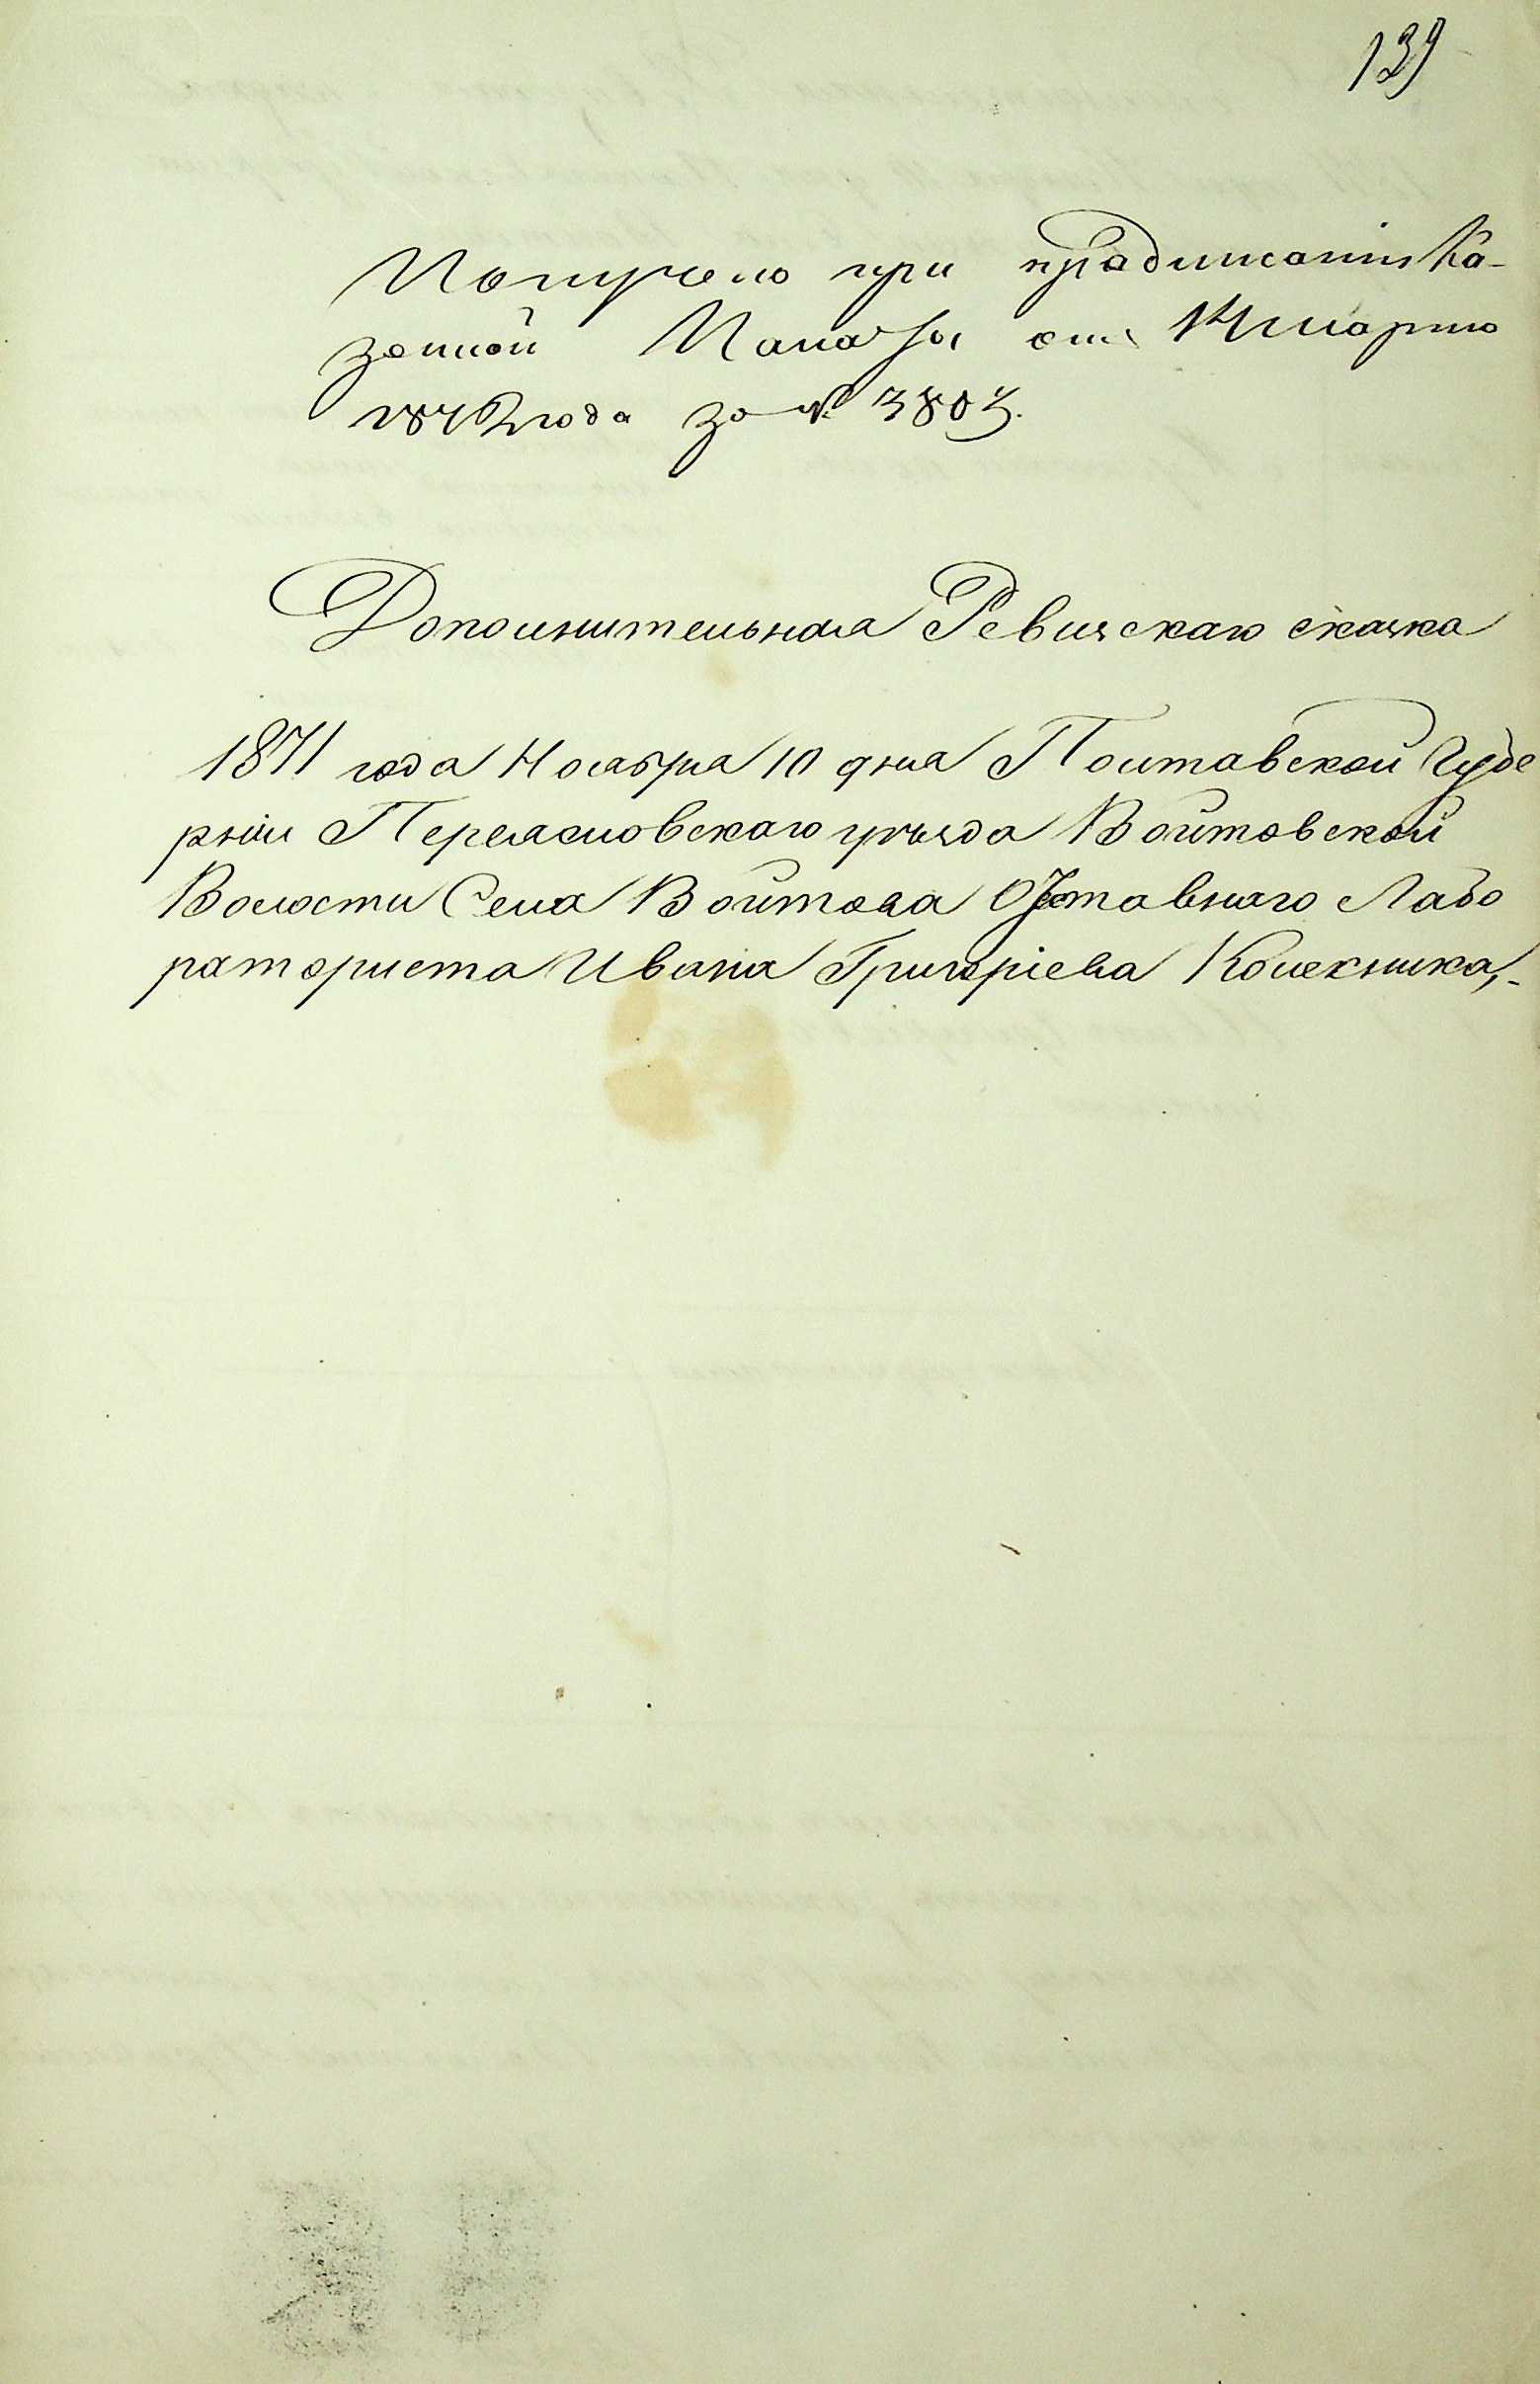 139
Получено при предписаніи Ка-
зенной Палаты отъ 14 марта
1872 года за № 3803.
Дополнительная Ревизскаю сказка
1871 года Ноября 10 дня Полтавской Губе
рніи Переясловскаго уѣзда Войтовской
Волости Села Войтова Отставного Лабо
раториста Ивана Григоріева